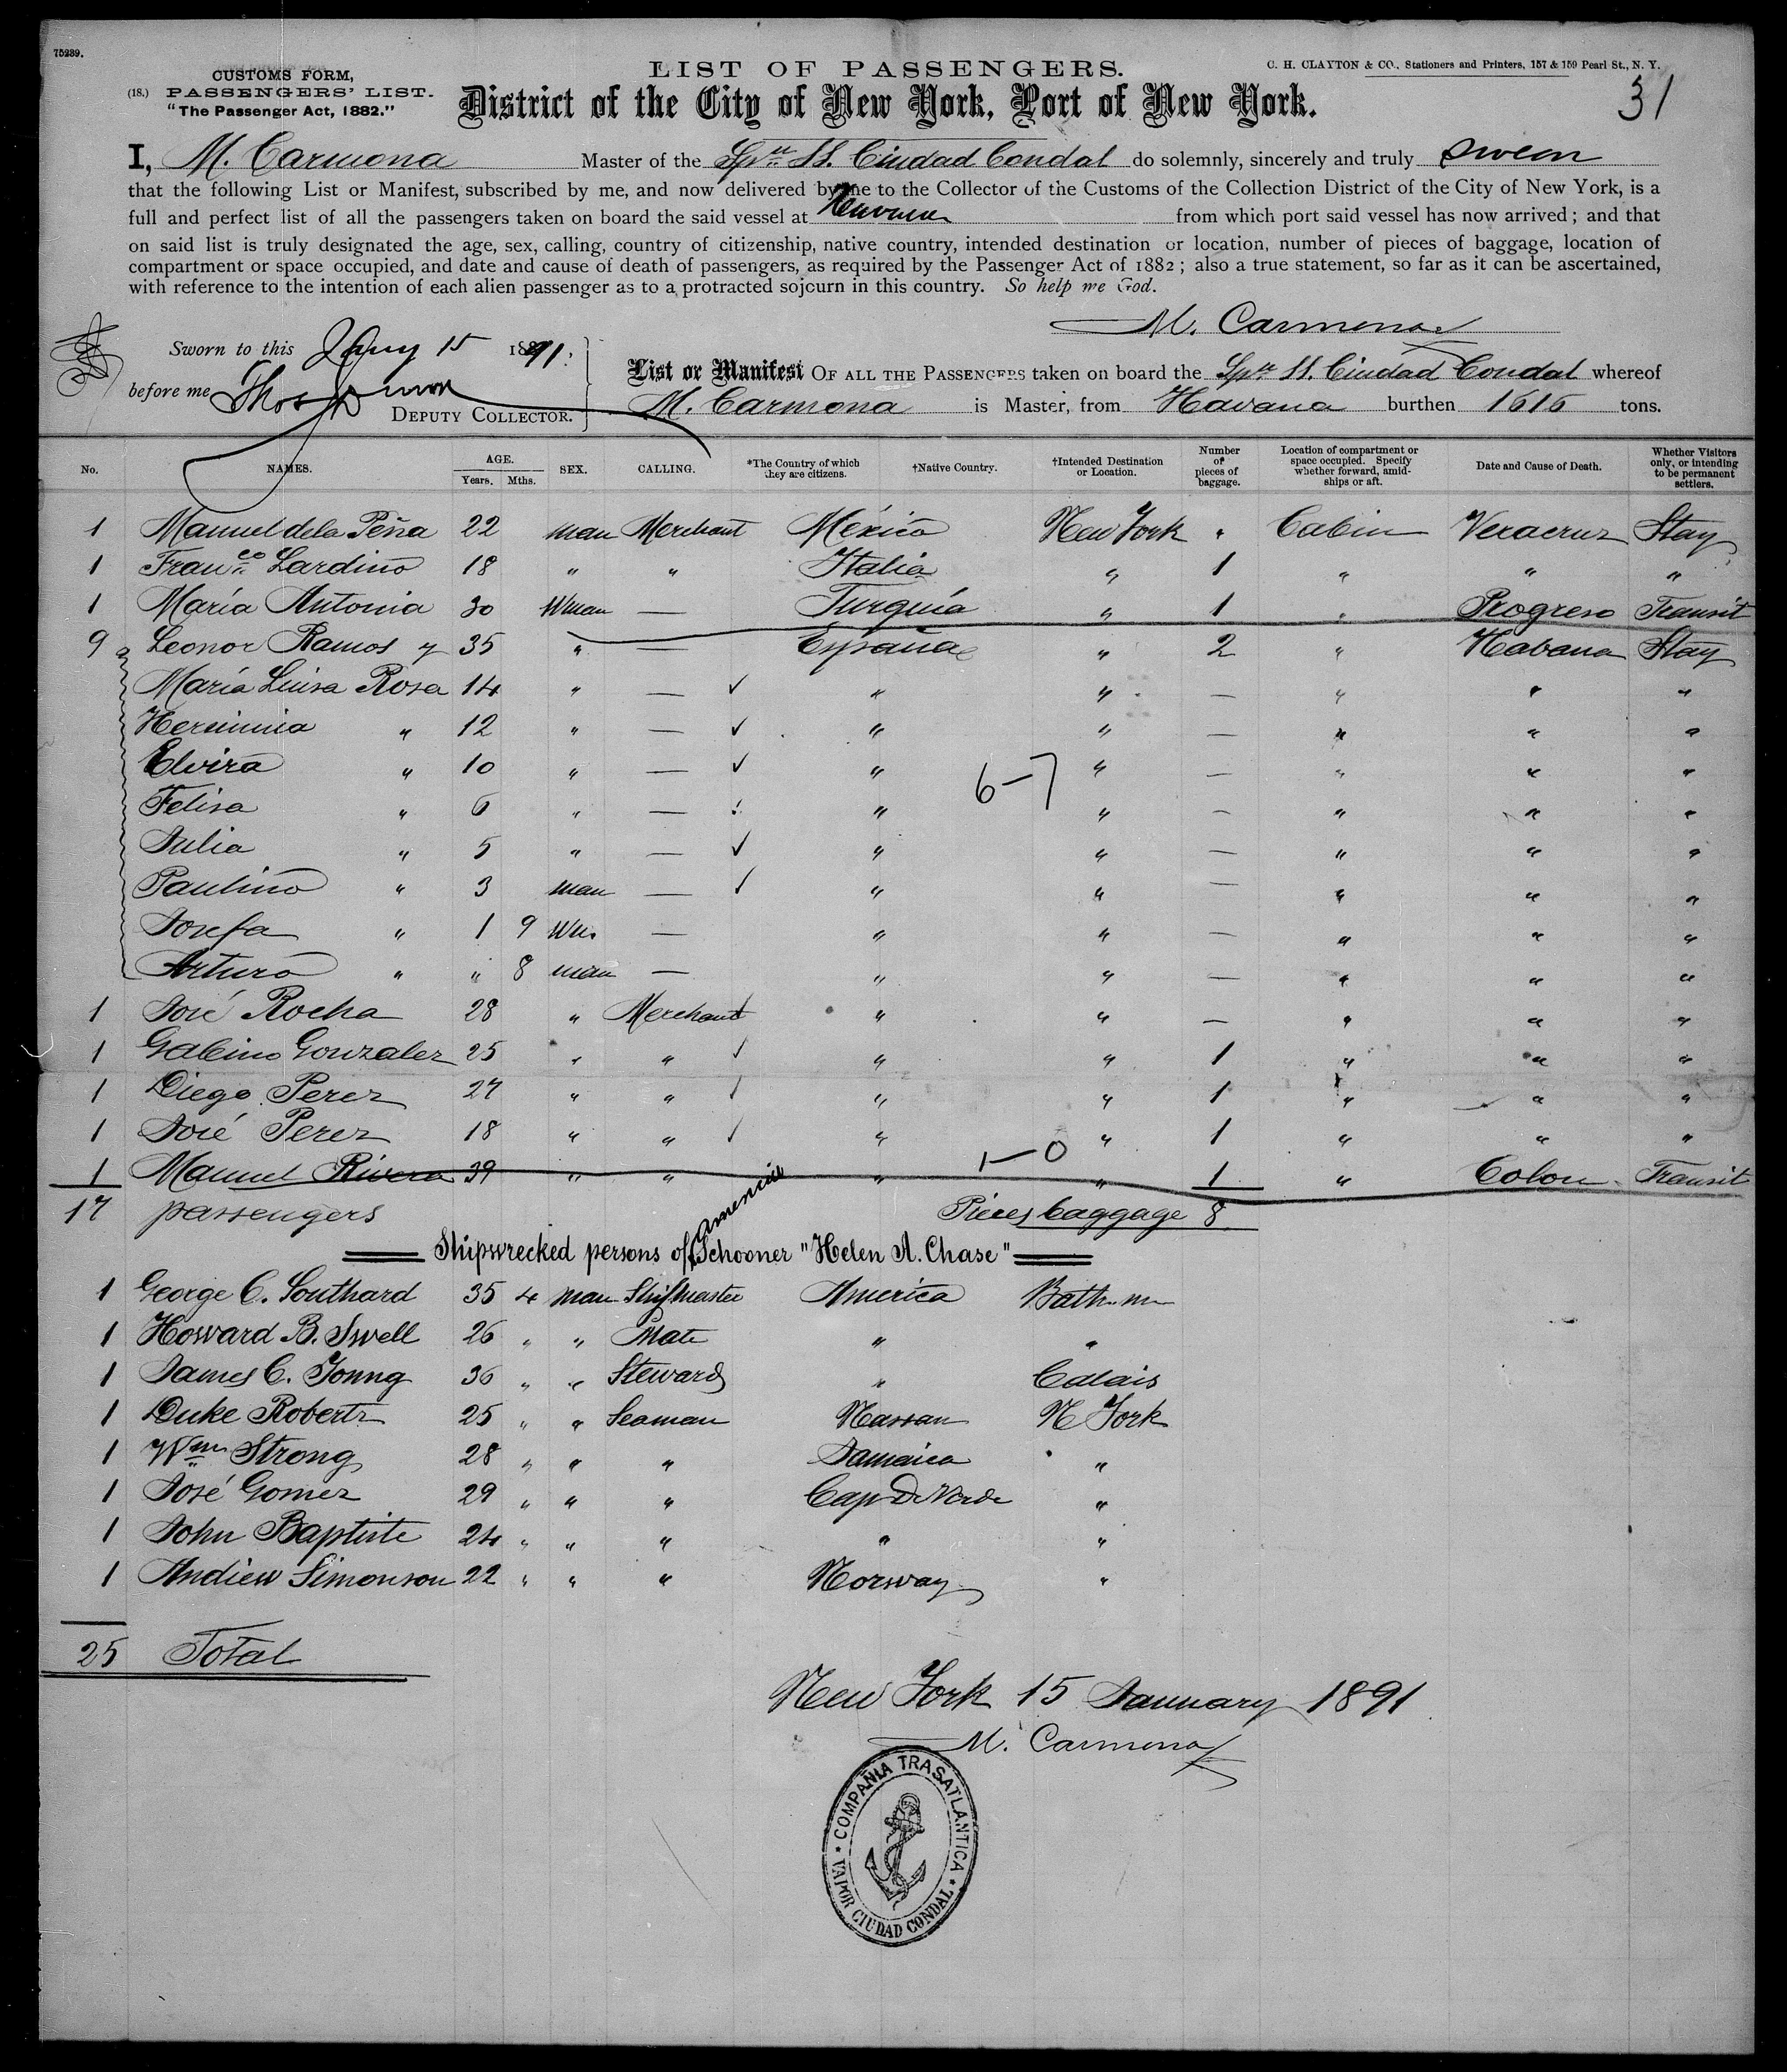 75239.
CUSTOMS FORM,
(18.) PASSENGERS' LIST.
"The Passenger Act, 1882."
LIST OF PASSENGERS.
C. H. CLAYTON & CO., Stationers and Printers, 157 & 159 Pearl St., N. Y.
District of the City of New York, Port of New York.
31
I, M. Carmona Master of the Spn SS. Ciudad Condal do solemnly, sincerely and truly swear
that the following List or Manifest, subscribed by me, and now delivered by me to the Collector of the Customs of the Collection District of the City of New York, is a
full and perfect list of all the passengers taken on board the said vessel at Havana from which port said vessel has now arrived; and that
on said list is truly designated the age, sex, calling, country of citizenship, native country, intended destination or location, number of pieces of baggage, location of
compartment or space occupied, and date and cause of death of passengers, as required by the Passenger Act of 1882; also a true statement, so far as it can be ascertained,
with reference to the intention of each alien passenger as to a protracted sojourn in this country. So help me God.
M. Carmona
Sworn to this Jany 15 1891.
before me Thos
DEPUTY COLLECTOR.
List or Manifest OF ALL THE PASSENGERS taken on board the Spn SS. Ciudad Condal whereof
M. Carmona is Master, from Havana burthen 1616 tons.
No. NAMES. AGE. Years. Mths. SEX. CALLING. *The Country of which they are citizens. †Native Country. †Intended Destination or Location. Number of pieces of baggage. Location of compartment or space occupied. Specify whether forward, amidships or aft. Date and Cause of Death. Whether Visitors only, or intending to be permanent settlers.
1 Manuel de la Peña 22 man Merchant México New York " Cabin Veracruz Stay
1 Franco Lardino 18 " " Italia " 1 " " "
1 María Antonia 30 Wman — Turquía " 1 " Progreso Transit
9 Leonor Ramos y 35 " — España " 2 " Habana Stay
María Luisa Rosa 14 " — ✓ " " — " " "
Herminia " 12 " — ✓ " " — " " "
Elvira " 10 " — ✓ " " — " " "
6–7
Felisa " 6 " — " " — " " "
Julia " 5 " — ✓ " " — " " "
Paulino " 3 man — ✓ " " — " " "
Josefa " 1 9 Wm. — " " — " " "
Arturo " " 8 man — " " — " " "
1 José Rocha 28 " Merchant " " — " " "
1 Gabino Gonzalez 25 " " ✓ " " 1 " " "
1 Diego Perez 27 " " ✓ " " 1 " " "
1 José Perez 18 " " ✓ " " 1 " " "
1–0
1 Manuel Rivera 39 " " " " 1 " Colon Transit
17 passengers Pieces baggage 8
Shipwrecked persons of American Schooner "Helen A. Chase"
1 George C. Southard 35 4 man Shipmaster America Bath. me
1 Howard B. Swell 26 " " Mate " "
1 James C. Young 36 " " Steward " Calais
1 Duke Roberts 25 " " Seaman Nassau N York
1 Wm Strong 28 " " " Jamaica "
1 José Gomez 29 " " " Cap De Verde "
1 John Baptiste 24 " " " " "
1 Andrew Simonson 22 " " " Norway "
25 Total
New York 15 January 1891
M. Carmona
COMPAÑIA TRASATLANTICA
VAPOR CIUDAD CONDAL